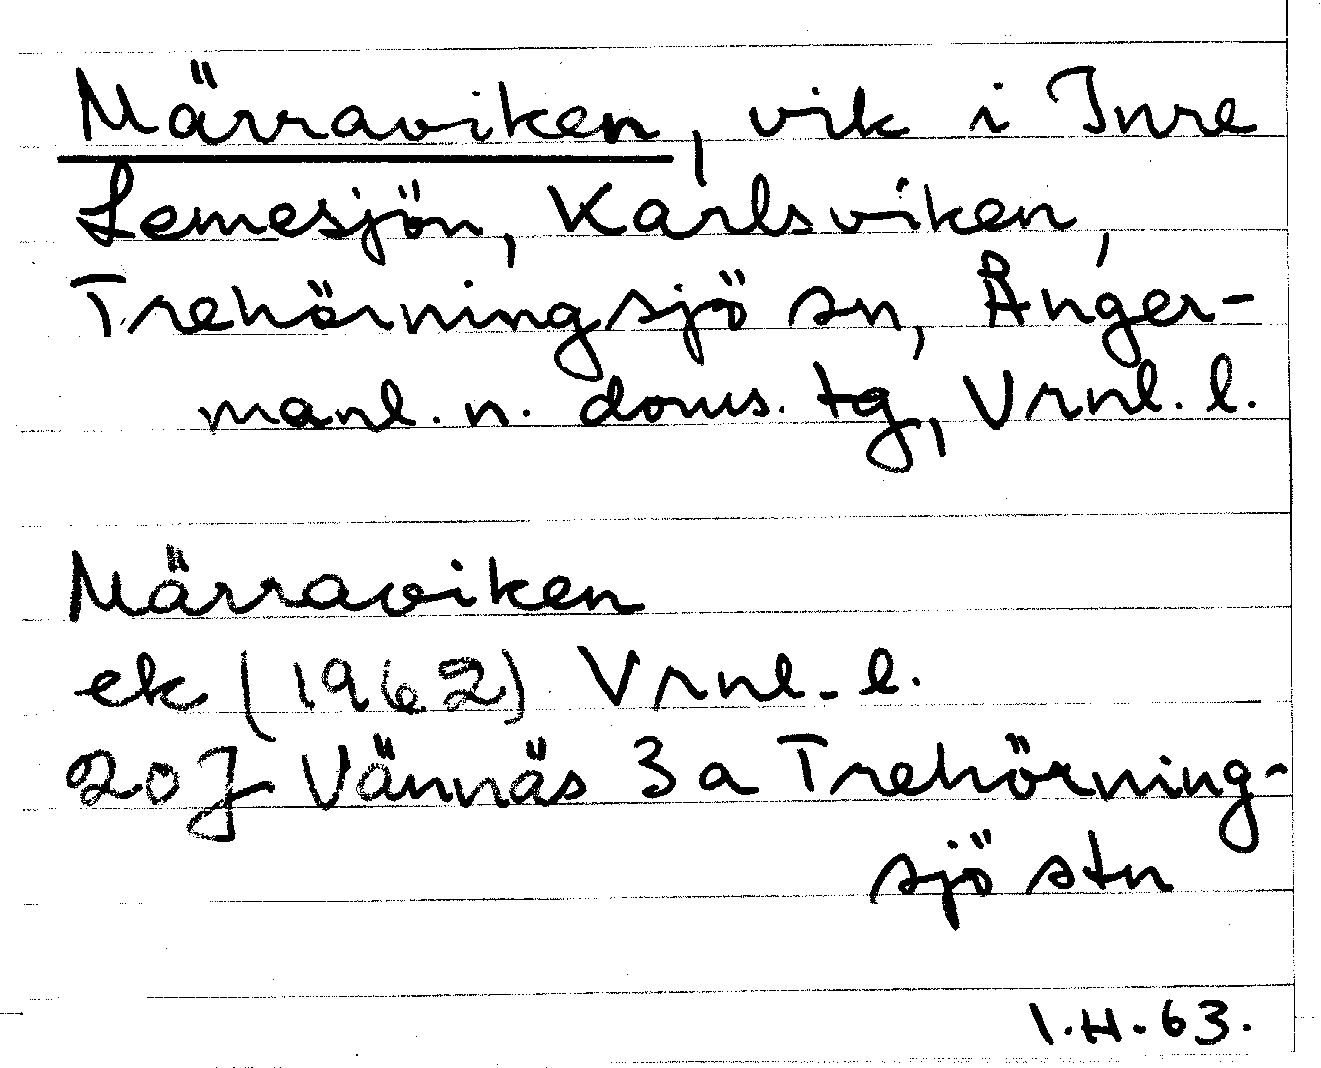 Märraviken, vik i Inre
Lemesjön, Karlsviken,
Trehörningsjö sn, Ånger-
manl. n. doms. tg, Vrnl. l.
Märraviken
ek (1962) Vrnl. l.
20J Vännäs 3a Trehörning-
sjö stn
I.H.63.